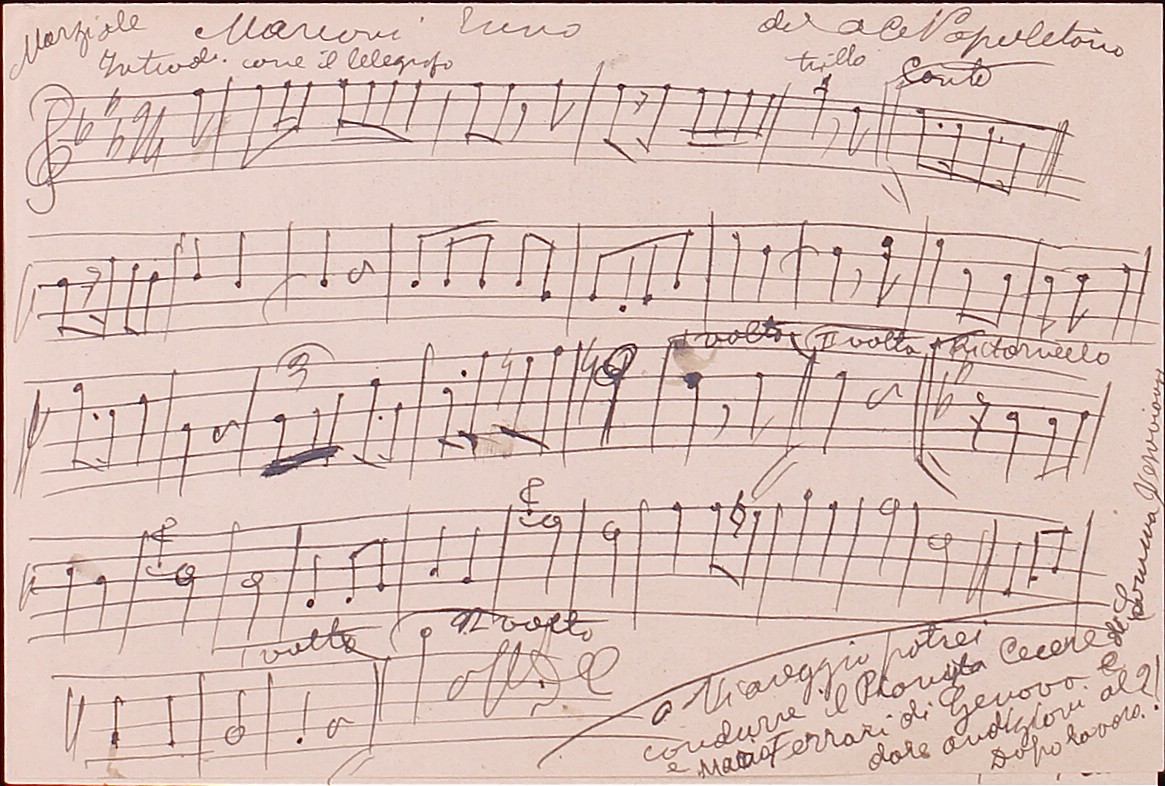 Marziale Marconi Inno del
Introd. come il telegrafo trillo Canto
3
I volta II volta Ritornello
I volta II volta
a Viareggio potrei
condurre il Pianista Cecere di
e Ferrari di Genova e
dare audizioni al
Dopolavoro!